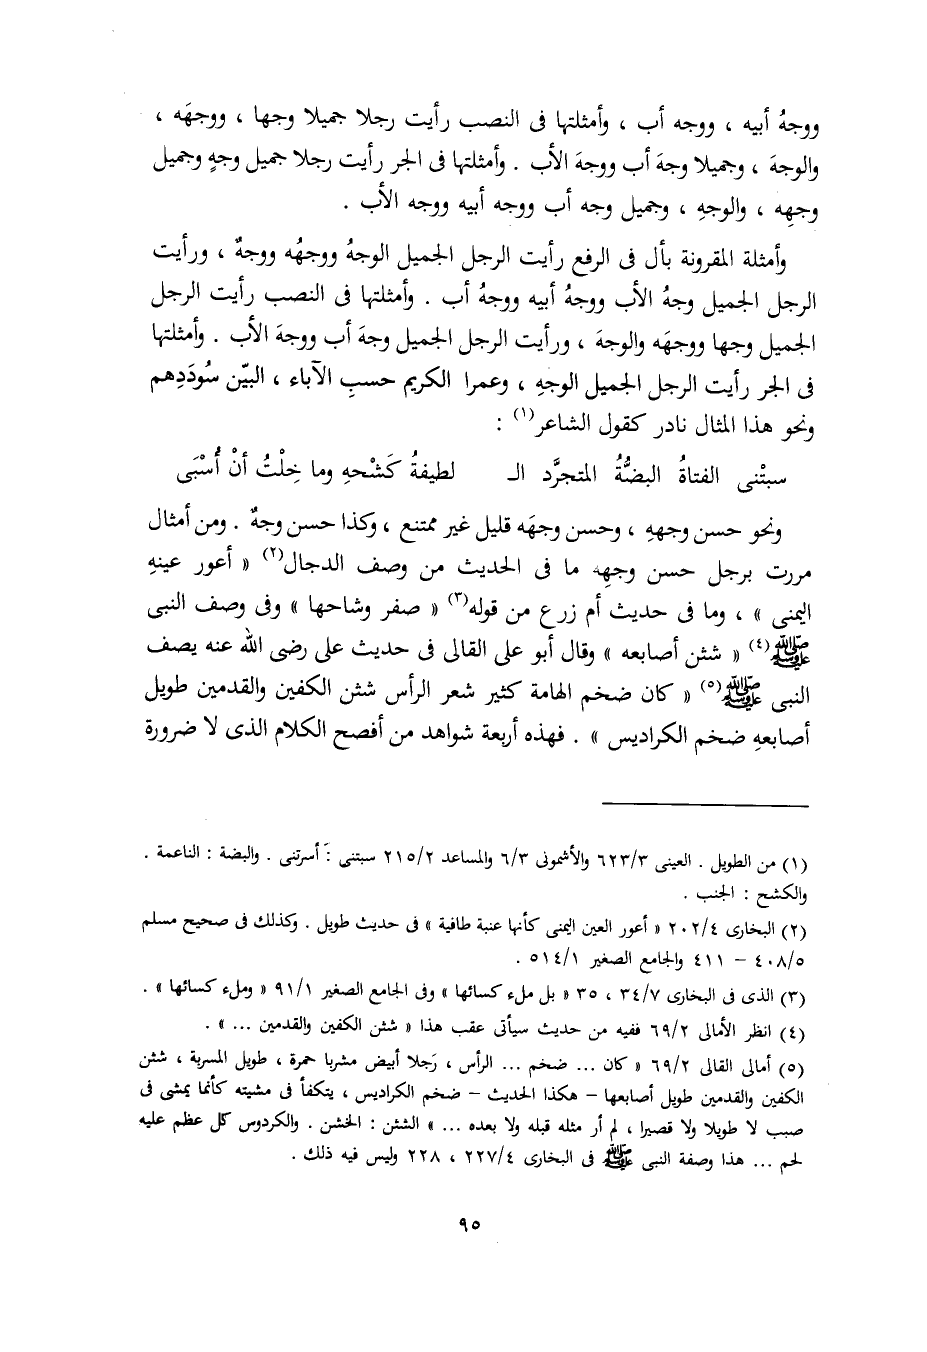 ووجهُ أبيه ، ووجه أب ، وأمثلتها فى النصب رأيت رجلا جميلا وجها ، ووجهَه ،
والوجهَ ، وجميلا وجهَ أب ووجهَ الأب . وأمثلتها فى الجر رأيت رجلا جميل وجهٍ وجميل
وجهِه ، والوجهِ ، وجميل وجه أب ووجه أبيه ووجه الأب .
وأمثلة المقرونة بأل فى الرفع رأيت الرجل الجميل الوجهُ ووجهُه ووجهٌ ، ورأيت
الرجل الجميل وجهُ الأب ووجهُ أبيه ووجهُ أب . وأمثلتها فى النصب رأيت الرجل
الجميل وجها ووجهَه والوجهَ ، ورأيت الرجل الجميل وجهَ أب ووجهَ الأب . وأمثلتها
فى الجر رأيت الرجل الجميل الوجهِ ، وعمرا الكريم حسبِ الآباء ، البيّن سُودَدِهم
ونحو هذا المثال نادر كقول الشاعر(١) :
سبتْنى الفتاةُ البضَّةُ المتجرَّد الـ لطيفةُ كَشْحهِ وما خِلْتُ أنْ أُسْبَى
ونحو حسن وجههِ ، وحسن وجهَه قليل غير ممتنع ، وكذا حسن وجهٌ . ومن أمثال
مررت برجل حسن وجهِه ما فى الحديث من وصف الدجال(٢) « أعور عينهِ
اليمنى » ، وما فى حديث أم زرع من قوله(٣) « صفر وشاحها » وفى وصف النبى
ﷺ(٤) « شثن أصابعه » وقال أبو على القالى فى حديث على رضى الله عنه يصف
النبى ﷺ(٥) « كان ضخم الهامة كثير شعر الرأس شثن الكفين والقدمين طويل
أصابعهِ ضخم الكراديس » . فهذه أربعة شواهد من أفصح الكلام الذى لا ضرورة
(١) من الطويل . العينى ٦٢٣/٣ والأشمونى ٦/٣ والمساعد ٢١٥/٢ سبتنى : أسرتنى . والبضة : الناعمة .
والكشح : الجنب .
(٢) البخارى ٢٠٢/٤ « أعور العين اليمنى كأنها عنبة طافية » فى حديث طويل . وكذلك فى صحيح مسلم
٤٠٨/٥ – ٤١١ والجامع الصغير ٥١٤/١ .
(٣) الذى فى البخارى ٣٤/٧ ، ٣٥ « بل ملء كسائها » وفى الجامع الصغير ٩١/١ « وملء كسائها » .
(٤) انظر الأمالى ٦٩/٢ ففيه من حديث سيأتى عقب هذا « شثن الكفين والقدمين ... » .
(٥) أمالى القالى ٦٩/٢ « كان ... ضخم ... الرأس ، رَجلا أبيض مشربا حمرة ، طويل المسربة ، شثن
الكفين والقدمين طويل أصابعها – هكذا الحديث – ضخم الكراديس ، يتكفأ فى مشيته كأنما يمشى فى
صبب لا طويلا ولا قصيرا ، لم أر مثله قبله ولا بعده ... » الشثن : الخشن . والكردوس كل عظم عليه
لحم ... هذا وصفة النبى ﷺ فى البخارى ٢٢٧/٤ ، ٢٢٨ وليس فيه ذلك .
٩٥